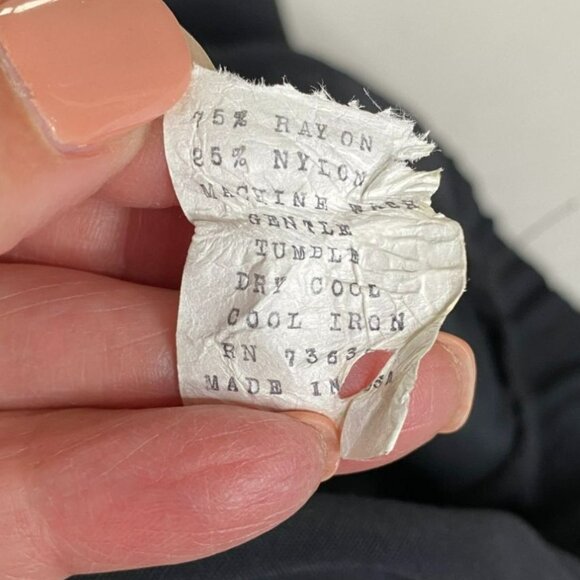 75% RAYON
25% NYLON
MACHINE WASH
GENTLE
TUMBLE
DRY COOL
COOL IRON
RN
MADE IN USA